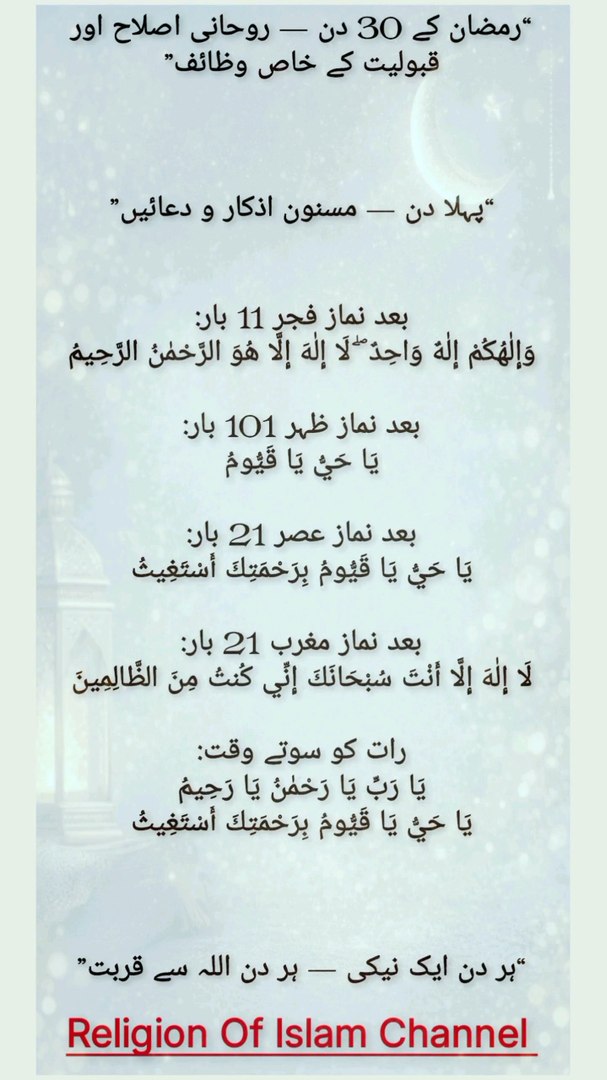 “رمضان کے 30 دن — روحانی اصلاح اور
قبولیت کے خاص وظائف”
“پہلا دن — مسنون اذکار و دعائیں”
بعد نماز فجر 11 بار:
وَإِلٰهُكُمْ إِلٰهٌ وَاحِدٌ ۖ لَا إِلٰهَ إِلَّا هُوَ الرَّحْمٰنُ الرَّحِيمُ
بعد نماز ظہر 101 بار:
يَا حَيُّ يَا قَيُّومُ
بعد نماز عصر 21 بار:
يَا حَيُّ يَا قَيُّومُ بِرَحْمَتِكَ أَسْتَغِيثُ
بعد نماز مغرب 21 بار:
لَا إِلٰهَ إِلَّا أَنْتَ سُبْحَانَكَ إِنِّي كُنتُ مِنَ الظَّالِمِينَ
رات کو سوتے وقت:
يَا رَبِّ يَا رَحْمٰنُ يَا رَحِيمُ
يَا حَيُّ يَا قَيُّومُ بِرَحْمَتِكَ أَسْتَغِيثُ
“ہر دن ایک نیکی — ہر دن اللہ سے قربت”
Religion Of Islam Channel